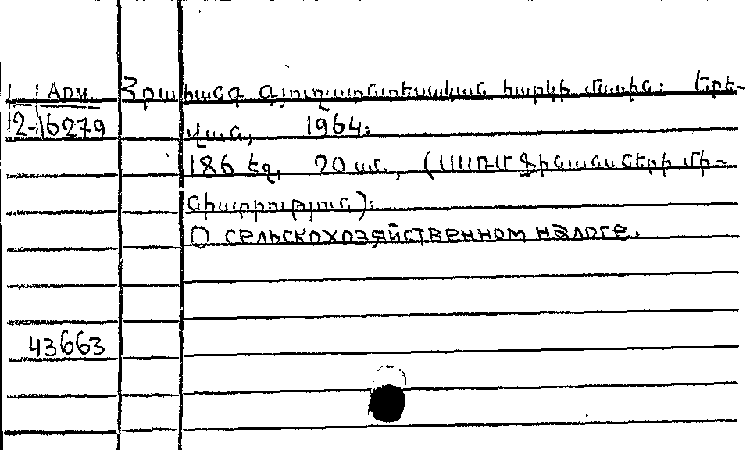 Арм. Հրահանգ գյուղատնտեսական հարկի մասին: Երե-
2-16279 վան, 1964:
186 էջ, 20 սմ., (ՍՍՌՄ Ֆինանսների մի-
նիստրություն):
О сельскохозяйственном налоге.
43663